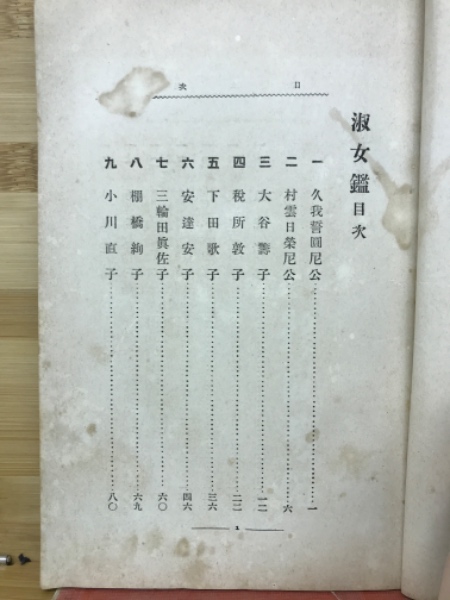 目次
淑女鑑目次
一 久我誓圓尼公 一
二 村雲日榮尼公 六
三 大谷籌子 一二
四 税所敦子 二二
五 下田歌子 三六
六 安達安子 四六
七 三輪田眞佐子 六〇
八 棚橋絢子 六九
九 小川直子 八〇
1